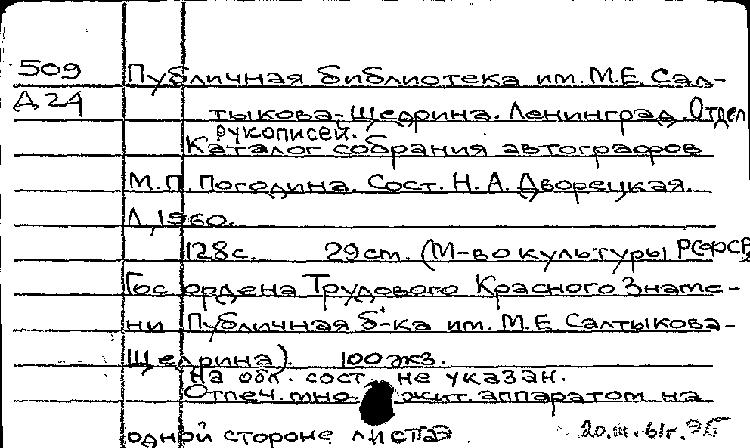 509 Публичная библиотека им. М.Е. Сал-
Д 24 тыкова-Щедрина. Ленинград. Отдел
рукописей.
Каталог собрания автографов
М.П. Погодина. Сост. Н.А. Дворецкая.
Л, 1960.
128с. 29 cm. (М-во культуры РСФСР
Гос ордена Трудового Красного Знаме-
ни Публичная б-ка им. М.Е Салтыкова-
Щедрина) 100 экз.
На обл. сост. не указан.
Отпеч. множит. аппаратом на
одной стороне листа
20.III.61г.